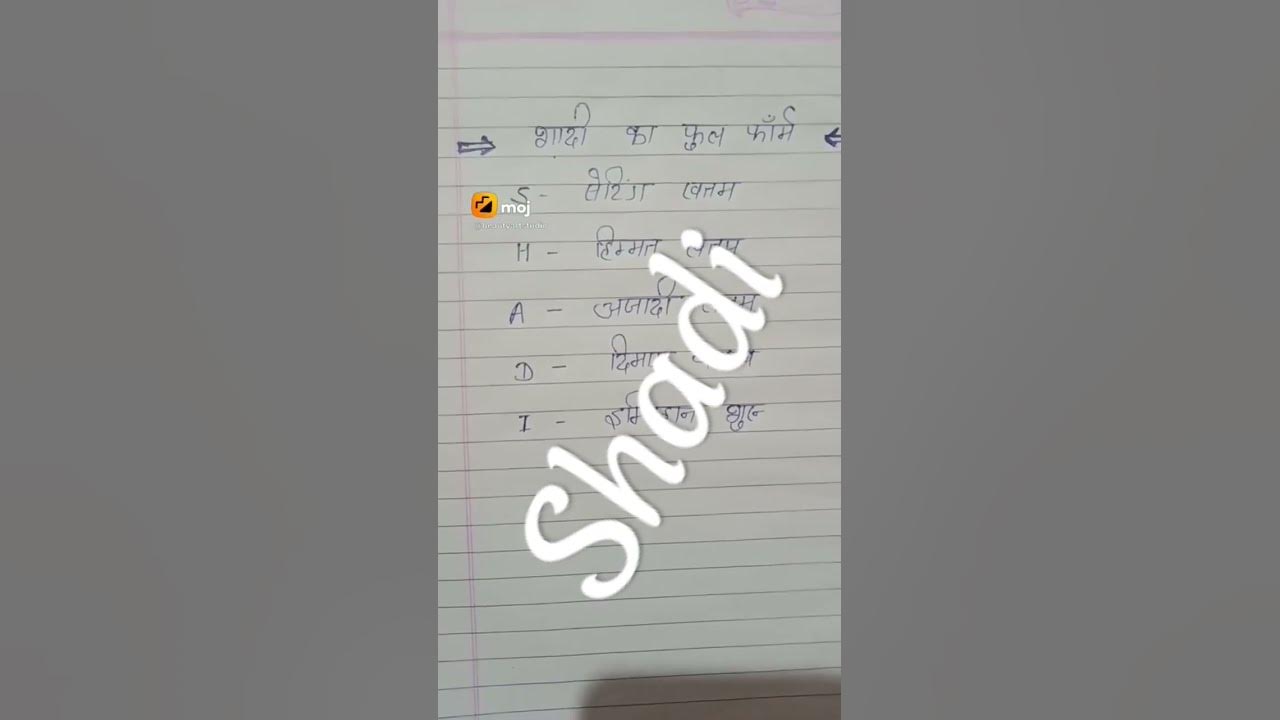 ⇒ शादी का फुल फॉर्म ⇐
S - सेटिंग खत्म
moj
H - हिम्मत
A - अजादी
D -
I - शुरू
Shadi